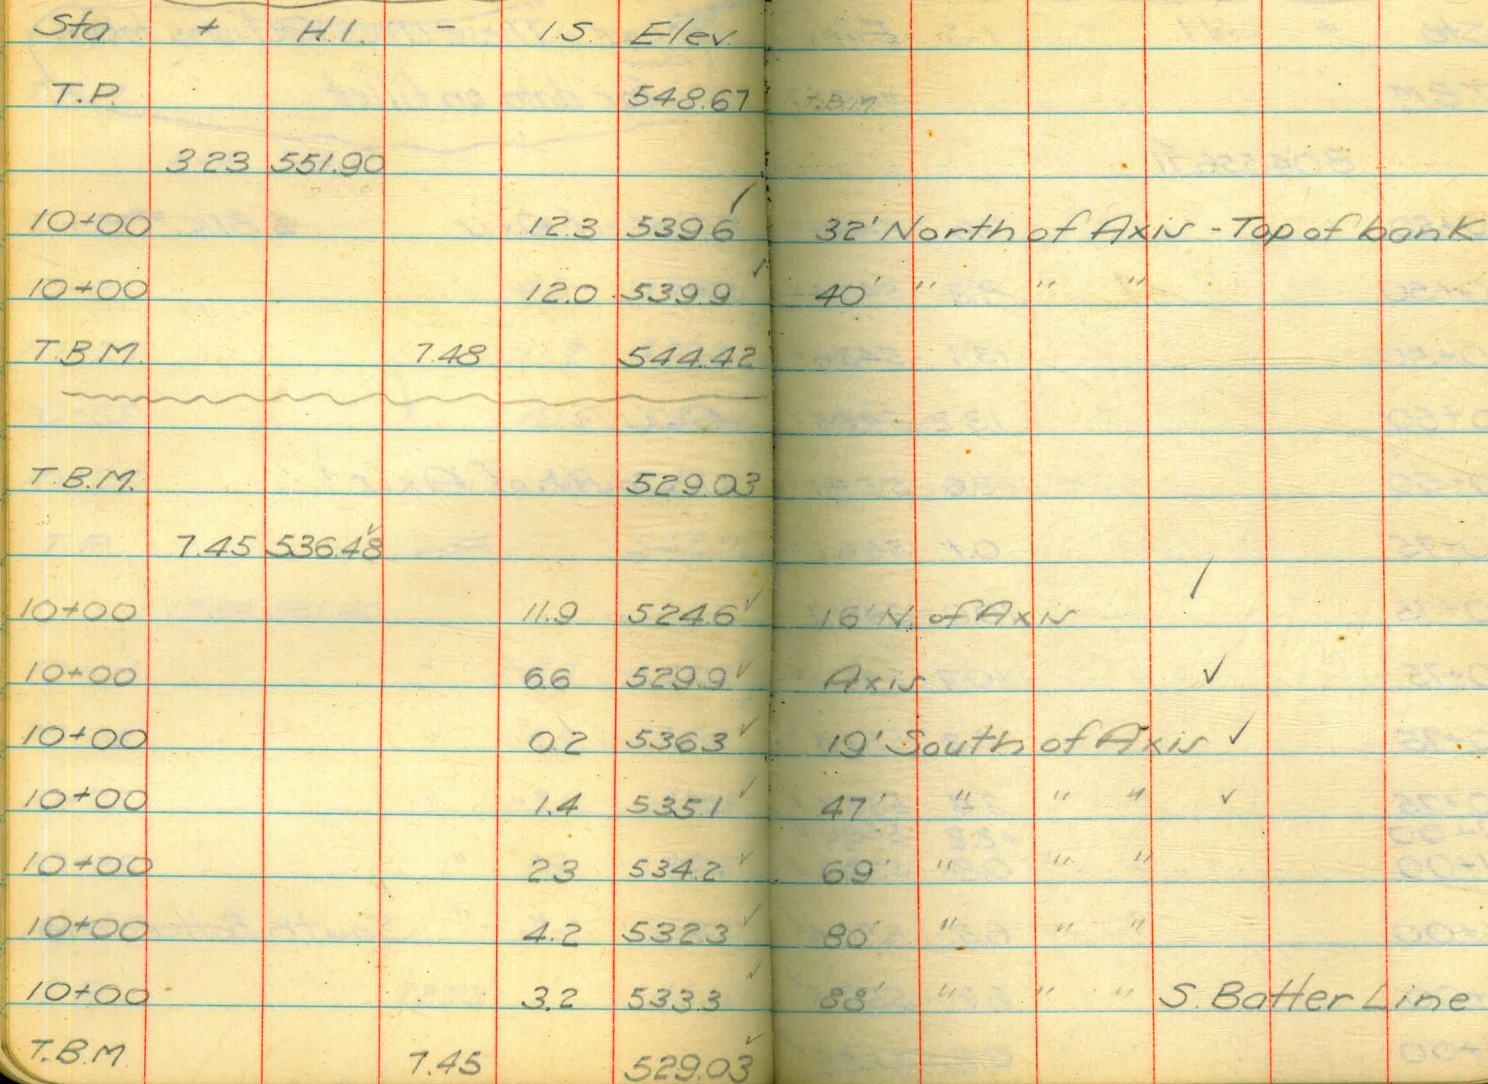 Sta + H.I. - I.S. Elev.
T.P. 548.67
3.23 551.90
10+00 12.3 539.6 32' North of Axis - Top of bank
10+00 12.0 539.9 40' " " "
T.B.M. 7.48 544.42
T.B.M. 529.03
7.45 536.48
10+00 11.9 524.6 16' N. of Axis
10+00 6.6 529.9 Axis
10+00 0.2 536.3 19' South of Axis
10+00 1.4 535.1 47' " " "
10+00 2.3 534.2 69' " " "
10+00 4.2 532.3 80' " " "
10+00 3.2 533.3 88' " " " S. Batter Line
T.B.M. 7.45 529.03